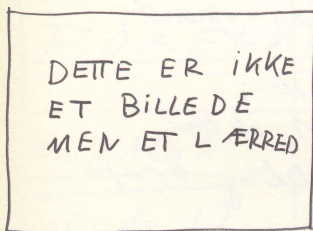 DETTE ER iKKE
ET BiLLEDE
MEN ET LÆRRED